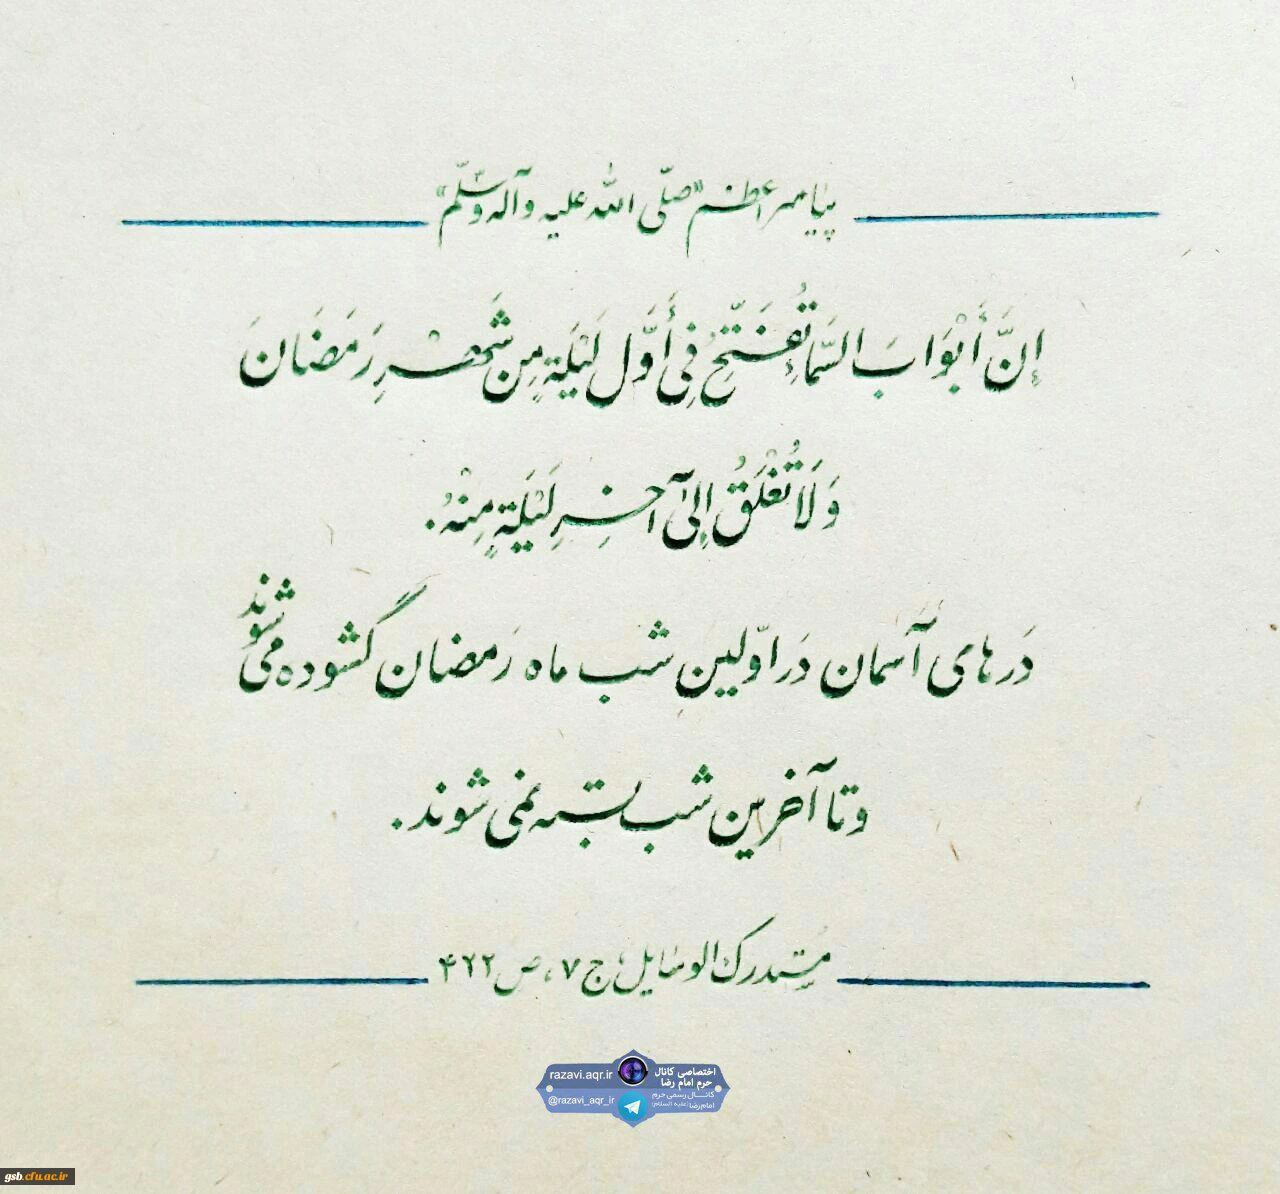 پیامبر اعظم «صلّی اللّه علیه وآله وسلّم»
إِنَّ أَبْوَابَ السَّمَاءِ تُفَتَّحُ فِی أَوَّلِ لَیْلَةٍ مِن شَهْرِ رَمَضَانَ
وَلَا تُغْلَقُ إِلیٰ آخِرِ لَیْلَةٍ مِنْهُ.
دَرهای آسمان دَر اوّلین شب ماه رَمضان گشوده می شوند
و تا آخرین شب بسته نمی شوند.
مُستدرک الوسایل، ج ۷، ص ۴۲۲
razavi.aqr.ir
اختصاصی کانال
حرم امام رضا
@razavi_aqr_ir
کانال رسمی حرم
امام رضا (علیه السلام)
gsb.cfu.ac.ir